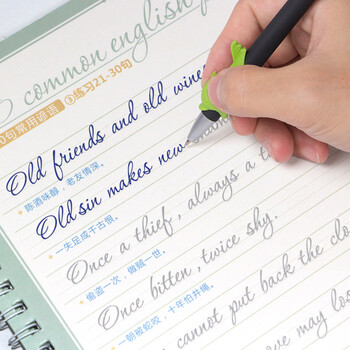 common english p
0句常用谚语 ③练习21-30句
Old friends and old wines
陈酒味醇，老友情深。
Old sin makes new sham
一失足成千古恨。
Once a thief, always a t
偷盗一次，做贼一世。
Once bitten, twice shy.
一朝被蛇咬，十年怕井绳。
cannot put back the clo
ove may los